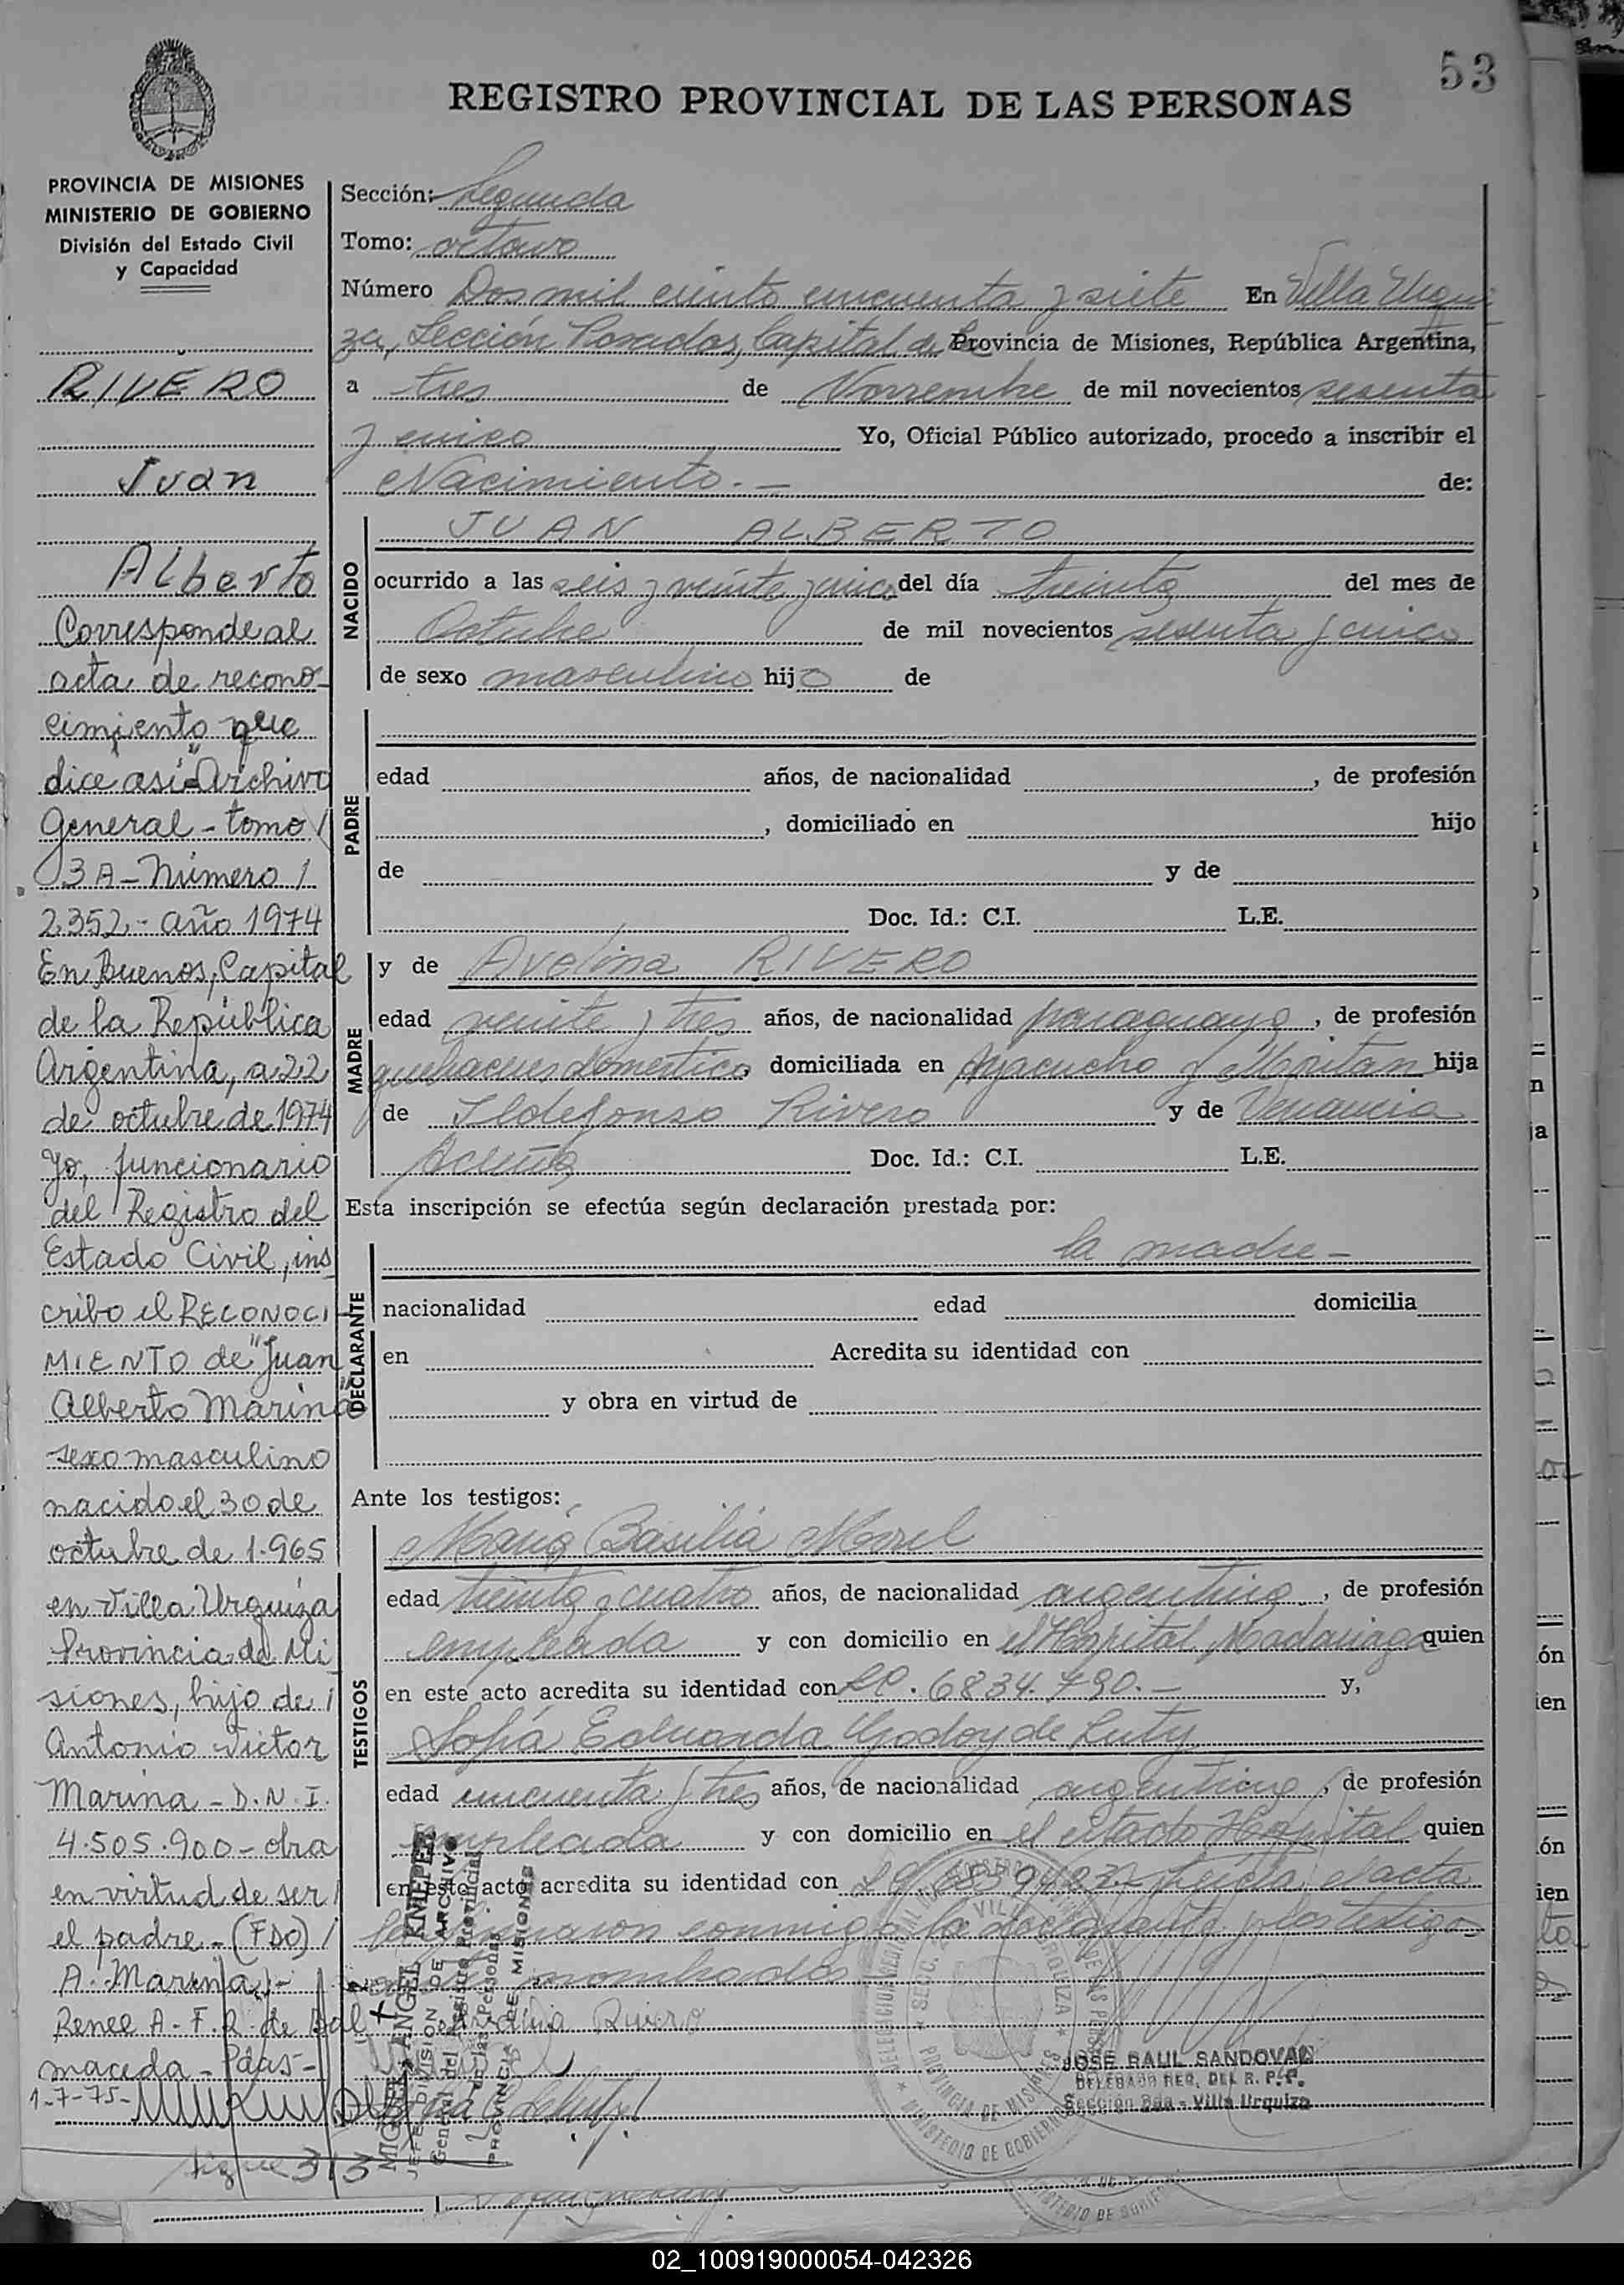 53
REGISTRO PROVINCIAL DE LAS PERSONAS
PROVINCIA DE MISIONES
MINISTERIO DE GOBIERNO
División del Estado Civil
y Capacidad
RIVERO
Juan
Alberto
Corresponde al
acta de recono-
cimiento que
dice asi "Archivo
General - tomo /
3A - Número /
2.352 - año 1974
En Buenos, Capital
de la República
Argentina, a 22
de octubre de 1974
Yo, funcionario
del Registro del
Estado Civil, ins
cribo el RECONOCI
MIENTO de "Juan
Alberto Marina"
sexo masculino
nacido el 30 de
octubre de 1.965
en Villa Urquiza
Provincia de Mi
siones, hijo de /
Antonio Victor
Marina - D.N.I.
4.505.900 - obra
en virtud de ser /
el padre - (FDO) /
A. Marina -
Renee A. F. R. de Dal
maceda - Pdas -
1-7-75-
sigue 313
Sección: Segunda
Tomo: octavo
Número Dos mil ciento cincuenta y siete En Villa Urqui
za, Sección Posadas, Capital de la Provincia de Misiones, República Argentina,
a tres de Noviembre de mil novecientos sesenta
y cinco Yo, Oficial Público autorizado, procedo a inscribir el
Nacimiento. - de:
NACIDO
JUAN ALBERTO
ocurrido a las seis y veinte y cinco del día treinta del mes de
Octubre de mil novecientos sesenta y cinco
de sexo masculino hijo de
PADRE
edad años, de nacionalidad , de profesión
, domiciliado en hijo
de y de
Doc. Id.: C.I. L.E.
MADRE
y de Avelina RIVERO
edad veinte y tres años, de nacionalidad paraguaya, de profesión
quehaceres domestico, domiciliada en Ayacucho y Mitan hija
de Ildefonso Rivero y de Venancia
Acuña Doc. Id.: C.I. L.E.
Esta inscripción se efectúa según declaración prestada por:
DECLARANTE
la madre -
nacionalidad edad domicilia
en Acredita su identidad con
y obra en virtud de
Ante los testigos:
TESTIGOS
María Basilia Morel
edad treinta y cuatro años, de nacionalidad argentina, de profesión
empleada y con domicilio en el Hospital Madariaga quien
en este acto acredita su identidad con LC. 6834.790. - y,
Sofía Eduarda Godoy de Luty
edad cincuenta y tres años, de nacionalidad argentina, de profesión
empleada y con domicilio en el citado Hospital quien
en este acto acredita su identidad con Leída el acta
la firmaron conmigo la declarante y los testigos
nombrados
Avelina Rivero
MIGUEL ANGEL KNIEPER
JEFE DIVISION DE ARCHIVO
General del Registro Provincial
de las Personas
PROVINCIA DE MISIONES
JOSE RAUL SANDOVAL
DELEGADO REG. DEL R. P. P.
Sección 2da - Villa Urquiza
PROVINCIA DE MISIONES
MINISTERIO DE GOBIERNO
02_100919000054-042326